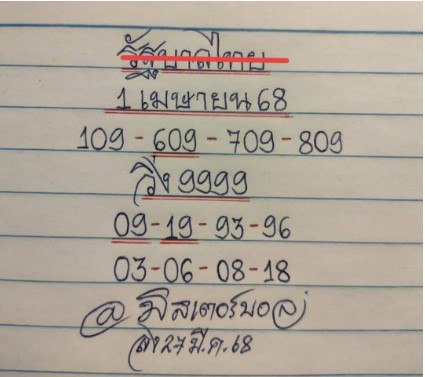 รัฐบาลไทย
1 เมษายน 68
109 - 609 - 709 - 809
วิ่ง 9999
09 - 19 - 93 - 96
03 - 06 - 08 - 18
@ มิสเตอร์บอล
ส่ง 27 มี.ค. 68